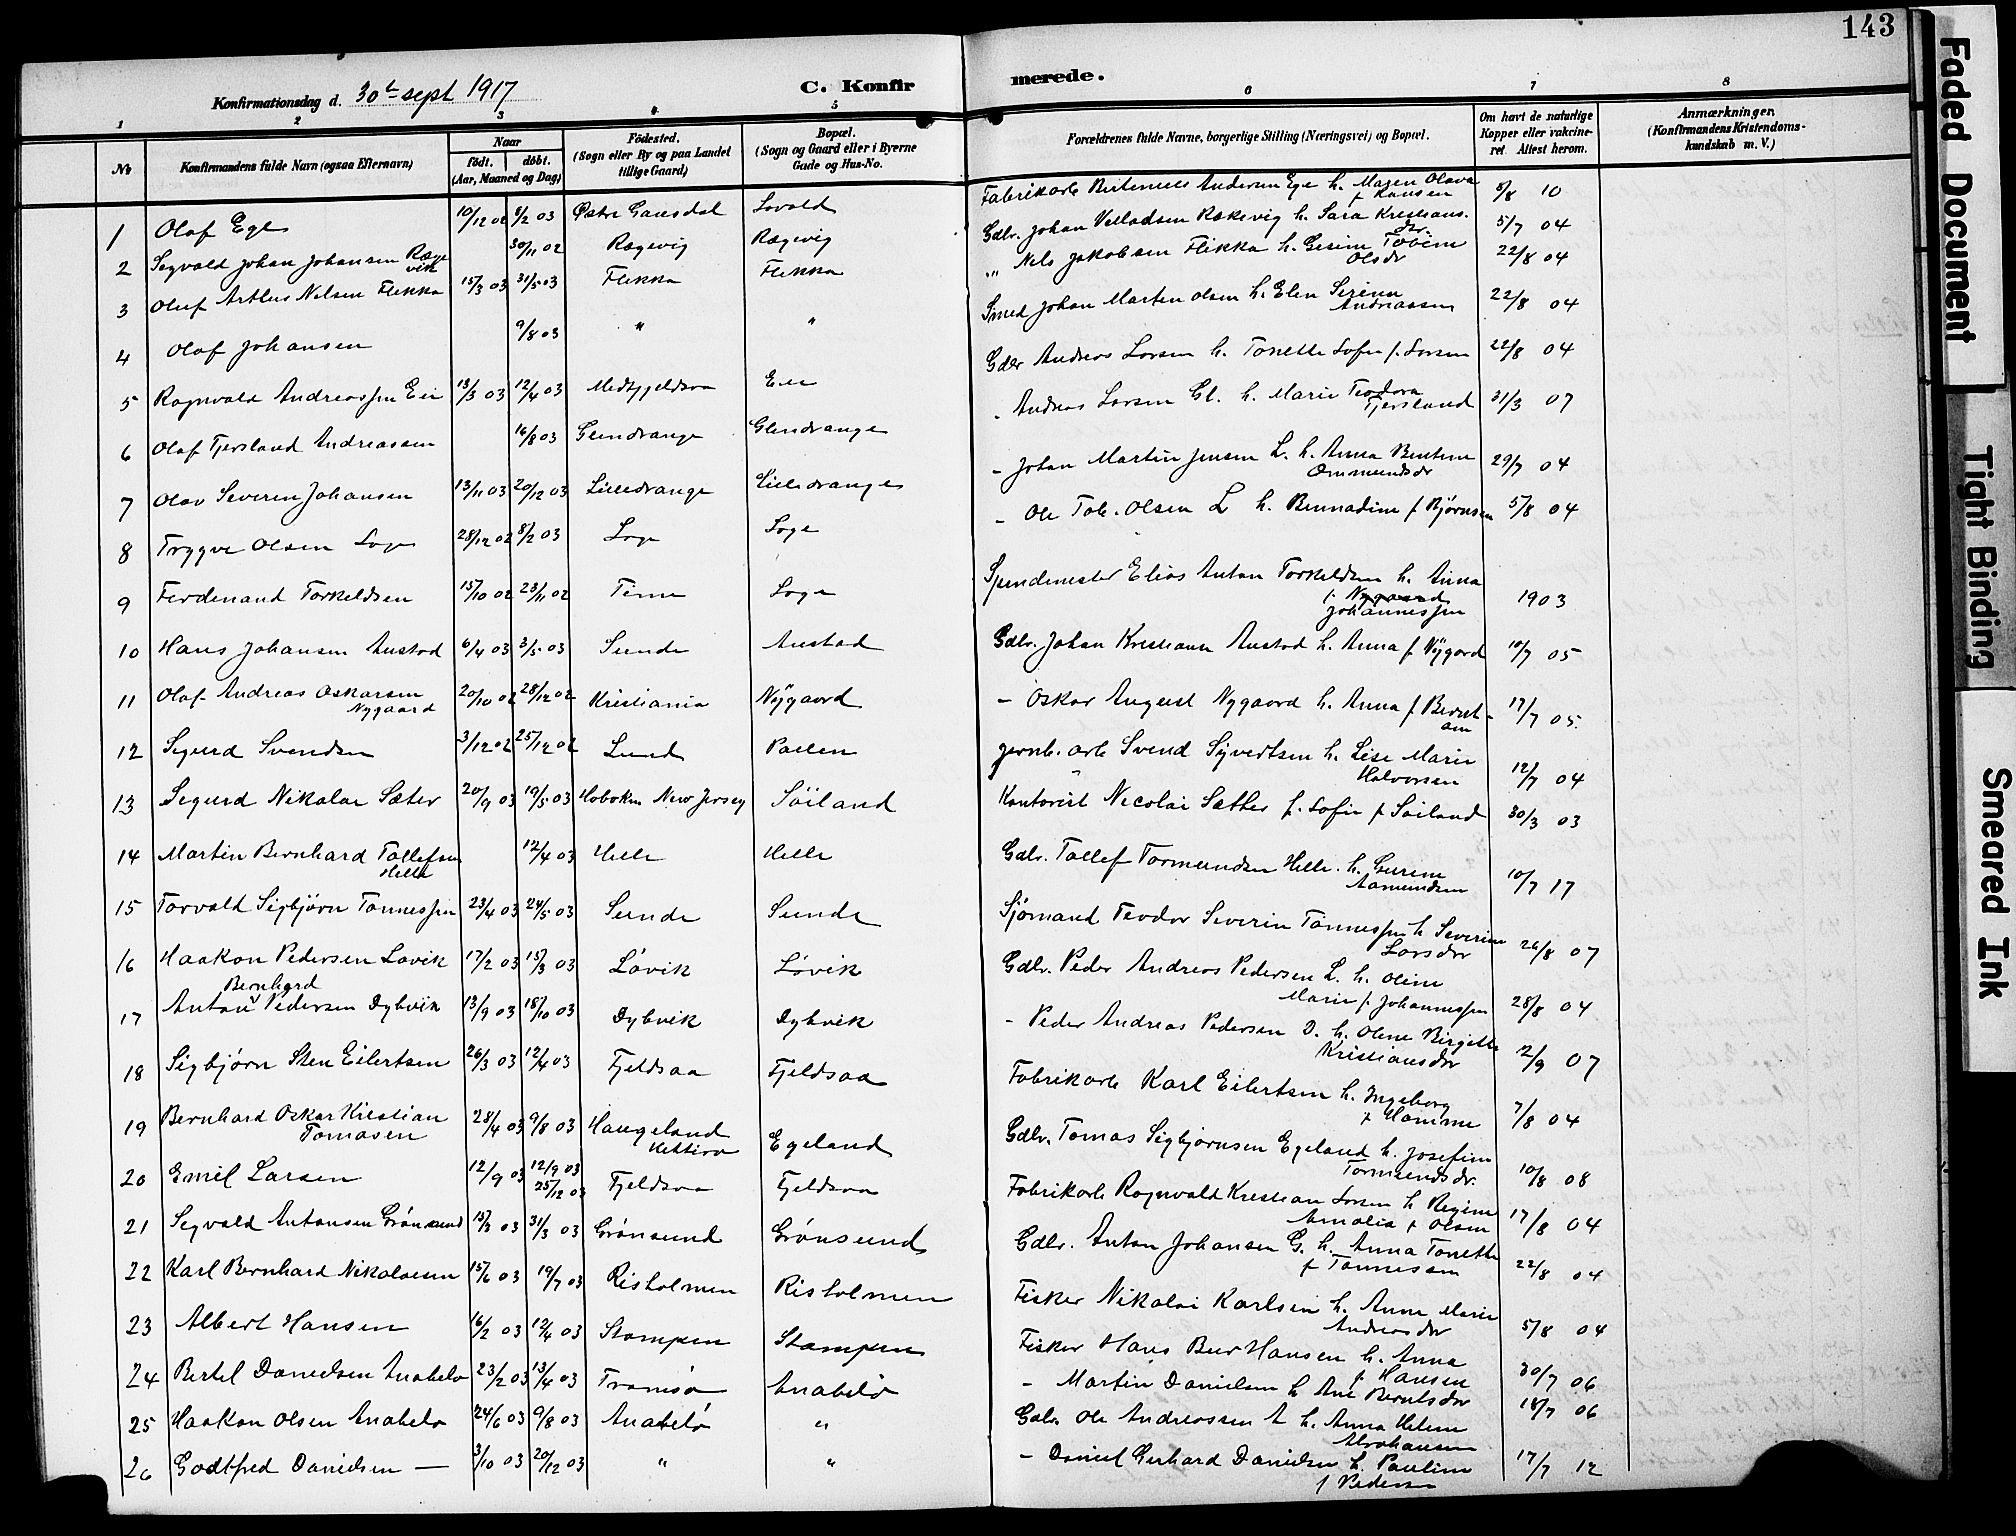 143
Konfirmationsdag d. 30te sept 1917
C. Konfir
merede.
1 2 3 4 5 6 7 8
No
Konfirmandens fulde Navn (ogsaa Efternavn)
Naar
födt. döbt.
(Aar, Maaned og Dag)
Födested.
(Sogn eller By og paa Landet
tillige Gaard)
Bopæl.
(Sogn og Gaard eller i Byerne
Gade og Hus-No.
Forældrenes fulde Navne, borgerlige Stilling (Næringsvei) og Bopæl.
Om havt de naturlige
Kopper eller vakcine-
ret Attest herom.
Anmærkninger.
(Konfirmandens Kristendoms-
kundskab m. V.)
1 Olaf Ege 10/12 02 8/2 03 Østre Gausdal Lovald Fabrikarb. Andersen Ege h. Maren Olava
f Hansen 5/8 10
2 Sigvald Johan Johansen Ræge
vik 30/11 02 Rægevig Rægevig Gdbr. Johan Velladsen Rækevig h. Sara Kristians.
dr. 5/7 04
3 Oluf Artlus Nelsen Flikka 15/3 03 31/5 03 Flikka Flikka „ Nels Jakobsen Flikka h. Gesine Tobine
Olsdr 22/8 04
4 Olaf Johansen 9/8 03 " " Smed Johan Martin Olsen h. Elen Serine
Andreassen 22/8 04
5 Ragnvald Andreassen Eie 13/3 03 12/4 03 Medfjeldsaa Eie Gdbr Andreas Larsen h. Tonette Sofie f. Larsen 22/8 04
6 Olaf Tjersland Andreassen 16/8 03 Glendrange Glendrange - Andreas Larsen Gl. h. Marie Teodora
Tjersland 31/3 07
7 Olav Severin Johansen 13/11 03 20/12 03 Lilledrange Lilledrange - Johan Martin Jensen L. h. Anna Bentine
Ommundsdr 29/7 04
8 Trygve Olsen Loge 28/12 02 8/2 03 Loge Loge - Ole Tob. Olsen L h. Bernadine f Bjørnsen 5/8 04
9 Ferdinand Torkeldsen 15/10 02 23/11 02 Time Loge Spindemester Elias Anton Torkeldsen h. Anna
f. Nygaard
Johannessen 1903
10 Hans Johansen Austad 6/4 03 3/5 03 Sunde Austad Gdbr. Johan Kristiansen Austad h. Anna f Nygard 10/7 05
11 Olaf Andreas Oskarsen
Nygaard 20/10 02 28/12 02 Kristiania Nygaard - Oskar August Nygaard h. Anna f Bernt-
sen 17/7 05.
12 Sigurd Svendsen 3/12 02 25/12 02 Lund Paelen jernb. arb Svend Sivertsen h. Lise Marie
Halvorsen 12/7 04
13 Sigurd Nikolai Sæter 20/9 03 19/5 03 Hoboken New Jersey Söiland Kontorist Nicolai Sæther f. Sofie f Söiland 30/3 03
14 Martin Bernhard Tollefsen
Helle 12/4 03 Helle Helle Gdbr. Tollef Tormundsen Helle. h. Gurine
Aamundsen 10/7 17
15 Torvald Sigbjörn Tönnessen 23/4 03 24/5 03 Sunde Sunde Sjömand Teodor Severin Tönnessen h Severine
Larsdr 26/8 07
16 Haakon Pedersen Lövik 17/2 03 15/3 03 Lövik Lövik Gdbr. Peder Andreas Pedersen L. h. Oline
Marie f. Johannessen 28/8 04
17 Anton Bernhard Pedersen Dybvik 13/9 03 18/10 03 Dybvik Dybvik - Peder Andreas Pedersen D. h. Oline Birgitte
Kristiansdr 12/9 07
18 Sigbjörn Sten Eilertsen 26/3 03 12/4 03 Fjeldsaa Fjeldsaa Fabrikarb Karl Eilertsen h. Ingeborg
f Homme 7/8 04
19 Bernhard Oskar Kristian
Tomasen 28/4 03 9/8 03 Haugeland
Egeland Gdbr. Tomas Sigbjörnsen Egeland h. Josefine
Tormundsdr. 10/8 08
20 Emil Larsen 12/9 03 12/9 03
25/12 03 Fjeldsaa Fjeldsaa Fabrikarb Ragnvald Kristian Larsen h Regine
Amalia f Olsen 17/8 04
21 Sigvald Antonsen Grönsund 15/3 03 31/3 03 Grönsund Grönsund Gdbr. Anton Johansen G. h. Anna Tonette
f Tönnesen 22/8 04
22 Karl Bernhard Nikolaisen 15/6 03 19/7 03 Risholmen Risholmen Fisker Nikolai Karlsen h. Anne Marie
Andreasdr 5/8 04
23 Albert Hansen 16/2 03 12/4 03 Stampen Stampen Fisker Hans Hansen h. Anna
f Hansen 30/7 06
24 Bertel Danielsen Anabelö 23/2 03 13/4 03 Tromsö Anabelö - Martin Danielsen h Ane Berntsdr 18/7 06
25 Haakon Olsen Anabelö 24/6 03 9/8 03 Anabelö " Gdbr Ole Andreassen A h. Anna Helene
Abrahamsen
26 Godtfred Danielsen — 3/10 03 20/12 03 " " - Daniel Gerhard Danielsen h. Pauline
f Pedersen 17/7 12
Faded Document
Tight Binding
Smeared Ink